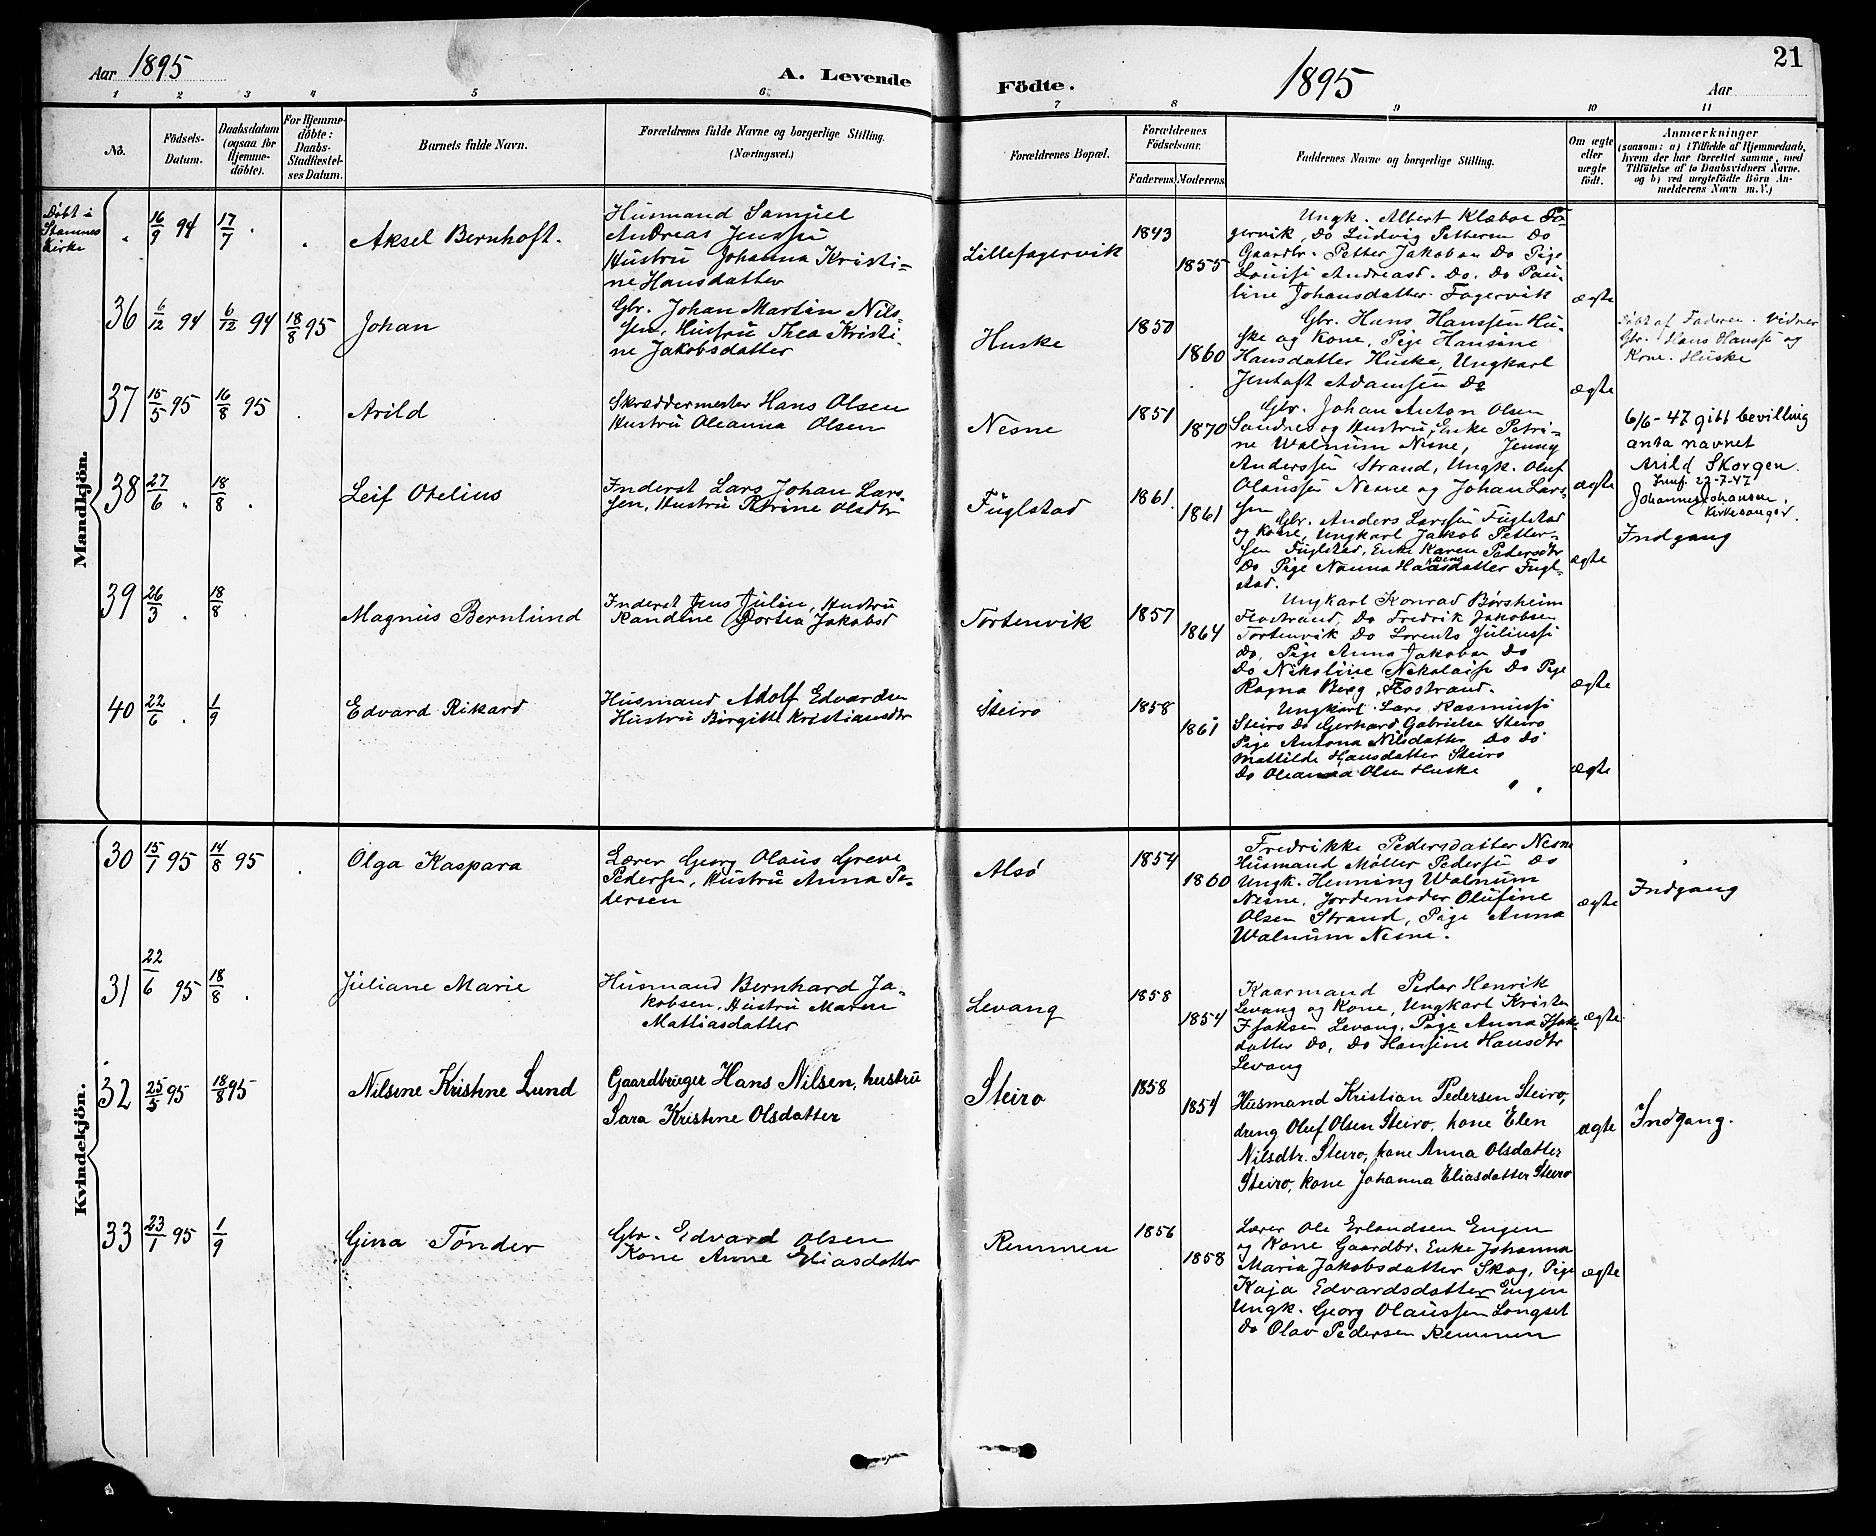 Aar 1895
A. Levende
Födte.
1895
Aar
21
1 2 3 4 5 6 7 8 9 10 11
No.
Födsels-
Datum.
Daabsdatum
(ogsaa for
Hjemme-
döbte).
For Hjemme-
döbte:
Daabs-
Stadfæstel-
ses Datum.
Barnets fulde Navn.
Forældrenes fulde Navne og borgerlige Stilling.
(Næringsvei.)
Forældrenes Bopæl.
Forældrenes
Födselsaar.
Faderens.
Moderens.
Faddernes Navne og borgerlige Stilling.
Om ægte
eller
uægte
födt.
Anmærkninger
(saasom: a) i Tilfælde af Hjemmedaab,
hvem der har forrettet samme, med
Tilföielse af to Daabsvidners Navne.
og b) ved uægtefödte Börn An-
melderens Navn m. V.)
Mandkjön.
Døbt i
Stamnes
Kirke
16/9 94
17/7
Aksel Bernhoft.
Husmand Samuel
Andreas Jenssen
Hustru Johanna Kristi=
ne Hansdatter
Lillefagervik
1843
1855
Ungk. Albert Klæboe Fa-
gervik, Do Ludvig Pettersen Do
Gaardbr. Petter Jakobsen Do Pige
Louise Andreasd. Do. Do Pau-
line Johansdatter Fagervik
ægte
36
6/12 94
6/12 94
18/8 95
Johan
Gbr. Johan Martin Nils-
sen, Hustru Thea Kristi-
ne Jakobsdatter
Huske
1850
1860
Gbr. Hans Hanssen Hu-
ske og Kone, Pige Hansine
Hansdatter Huske, Ungkarl
Jentoft Adamsen Do
ægte
Døbt af Faderen. Vidner
Gbr. Hans Hanssen og
Kone. Huske
37
15/5 95
16/8 95
Arild
Skræddermester Hans Olsen
Hustru Oleanna Olsen
Nesne
1851
1870
Gbr. Johan Anton Olsen
Sandnes og Hustru, Enke Petri-
ne Walnum Nesne, Jenny
Anderssen Strand, Ungk. Oluf
Olaussen Nesne og Johan Lars-
sen
ægte
6/6-47 gitt bevilling
anta navnet
Arild Skorgen.
Innf. 27-7-47
Johannes Johansen.
Kirkesanger.
38
27/6
18/8
Leif Otelius
Inderst Lars Johan Lars-
sen, Hustru Petrine Olsdtr
Fuglstad
1861
1861
Gbr. Anders Larssen Fuglstad
og Kone, Ungkarl Jakob Petter-
sen Fuglstad, Enke Karen Pedersdtr
Do Pige Nanna Haagensdatter Fugl-
stad.
ægte
Indgang
39
26/3
18/8
Magnus Bernlund
Inderst Jens Julin, Hustru
Randine Dortea Jakobsd
Tortenvik
1857
1864
Ungkarl Konrad Børsheim
Flostrand, Do Fredrik Jakobsen
Tortenvik Do Lorents Juliussen
Do, Pige Anna Jakobsen Do
Do Nikoline Nikolaisen Do Pige
Ragna Berg, Flostrand.
ægte
40
22/6
1/9
Edvard Rikard
Husmand Adolf Edvardsen
Hustru Birgitte Kristiansdtr
Steiro
1858
1861
Ungkarl Lars Rasmussen
Steiro Do Gerhard Gabrielsen Steiro
Pige Antona Nilsdatter Do Do
Mattilde Hansdatter Steiro
Do Oleanna Olsen Huske
ægte
Kvindekjön.
30
15/1 95
14/8 95
Olga Kaspara
Lærer Georg Olaus Greve
Pedersen, Hustru Anna Pe-
dersen
Alsø
1854
1860
Fredrikke Pedersdatter Nesne
Husmand Møller Pedersen Do
Ungk. Henning Walnum
Nesne, Jordemoder Olufine
Olsen Strand, Pige Anna
Walnum Nesne.
ægte
Indgang
31
22/6 95
18/8
Juliane Marie
Husmand Bernhard Ja-
kobsen, Hustru Maren
Mattiasdatter
Levang
1858
1854
Kaarmand Peder Henrik
Levang og Kone, Ungkarl Kristen
Isaksen Levang, Pige Anna Isak-
datter Do, Do Hansine Hansdtr
Levang
ægte
32
25/5 95
18/8 95
Nilsine Kristine Lund
Gaardbruger Hans Nilsen, hustru
Sara Kristine Olsdatter
Steiro
1858
1854
Husmand Kristian Pedersen Steiro,
dreng Oluf Olsen Steiro, kone Elen
Nilsdtr. Steiro, kone Anna Olsdatter
Steiro, kone Johanna Eliasdatter Steiro
ægte
Indgang.
33
23/1 95
1/9
Gina Tønder
Gbr. Edvard Olsen
Kone Anne Eliasdatter
Remmen
1856
1858
Lærer Ole Erlandsen Engen
og Kone Gaardbr. Enke Johanna
Maria Jakobsdatter Skog, Pige
Kaja Edvardsdatter Engen
Ungk. Georg Olaussen Langset
Do Olav Pedersen Remmen
ægte